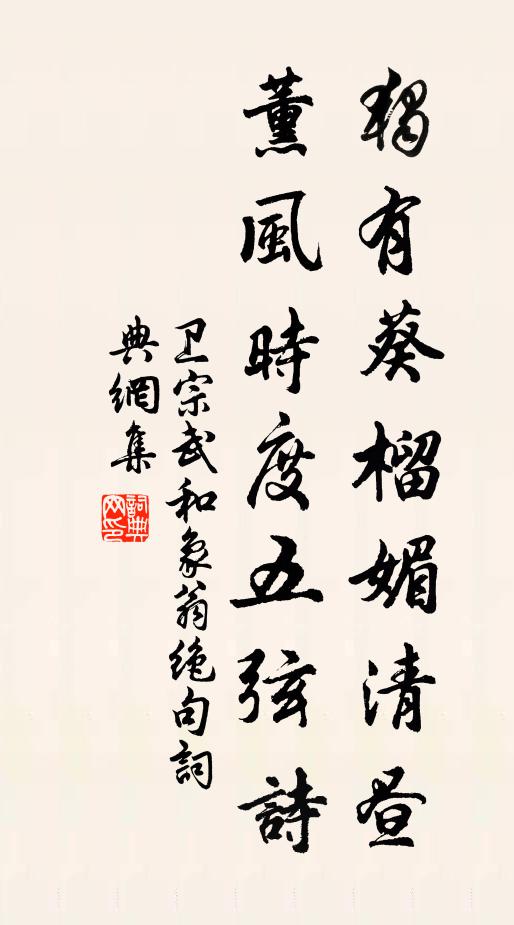 獨有葵榴媚清昼
薰風時度五弦詩
卫宗武和象翁绝句詞
典網集
詞典
网印